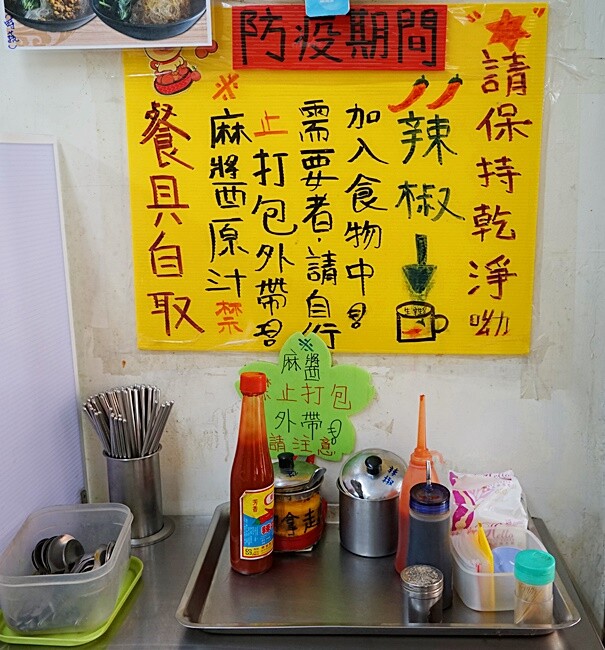 防疫期間
請保持乾淨呦
辣椒
加入食物中
需要者，請自行
止打包外帶
※麻將西原汁禁
餐具自取
※
麻醬
禁止打包
外帶
請注意
辣椒